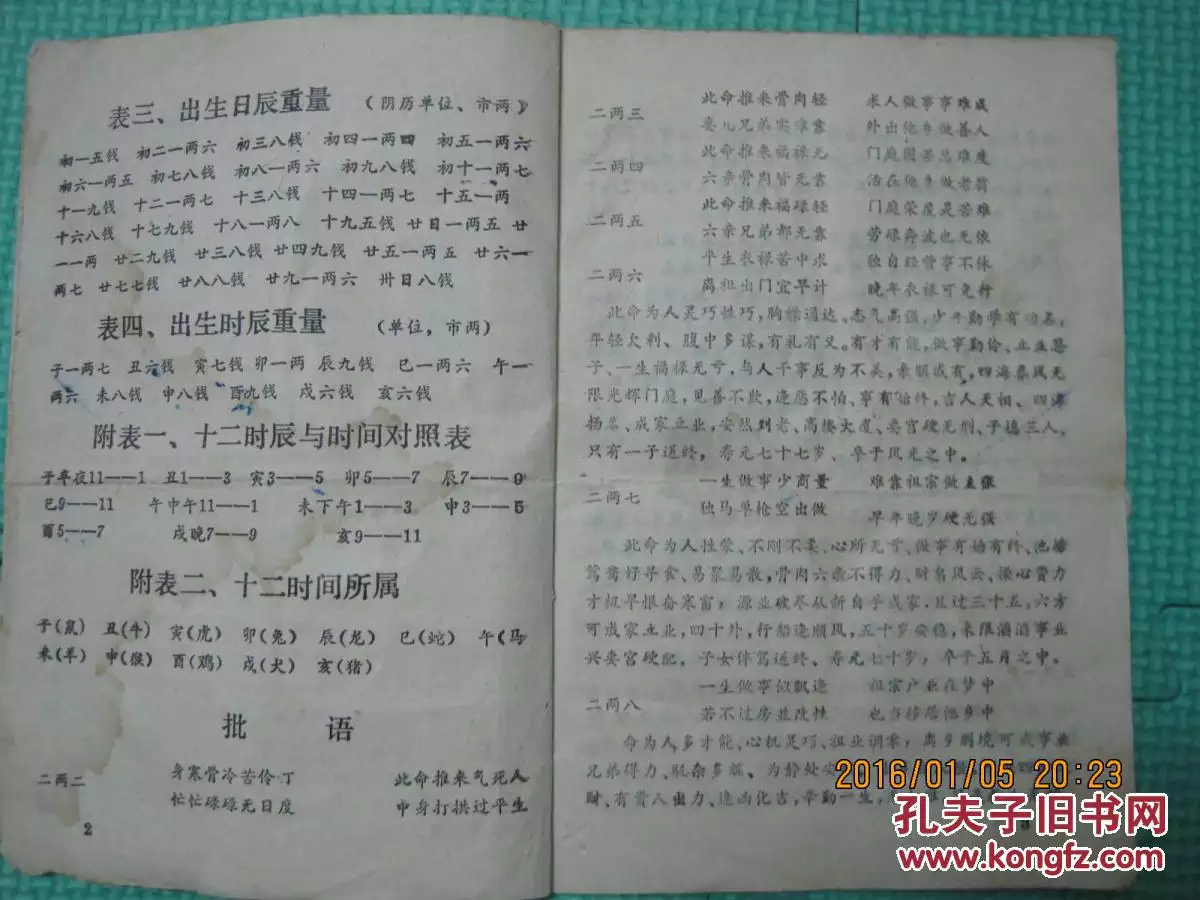 表三、出生日辰重量 (阴历单位、市两)
初一五钱 初二一两六 初三八钱 初四一两四 初五一两六
初六一两五 初七八钱 初八一两六 初九八钱 初十一两七
十一九钱 十二一两七 十三八钱 十四一两七 十五一两
十六八钱 十七九钱 十八一两八 十九五钱 廿日一两五 廿
一一两 廿二九钱 廿三八钱 廿四九钱 廿五一两五 廿六一
两七 廿七七钱 廿八八钱 廿九一两六 卅日八钱
表四、出生时辰重量 (单位,市两)
子一两七 丑六钱 寅七钱 卯一两 辰九钱 巳一两六 午一
两六 未八钱 申八钱 酉九钱 戌六钱 亥六钱
附表一、十二时辰与时间对照表
子半夜11——1 丑1——3 寅3——5 卯5——7 辰7——9
巳9——11 午中午11——1 未下午1——3 申3——5
酉5——7 戌晚7——9 亥9——11
附表二、十二时间所属
子(鼠) 丑(牛) 寅(虎) 卯(兔) 辰(龙) 巳(蛇) 午(马
未(羊) 申(猴) 酉(鸡) 戌(犬) 亥(猪)
批 语
二两二
身寒骨冷苦伶丁 此命推来气死人
忙忙碌碌无日度 中身打拱过平生
2
二两三
此命推来骨肉轻 求人做事事难成
妻儿兄弟实难靠 外出他乡做善人
二两四
此命推来福禄无 门庭困苦总难度
六亲骨肉皆无靠 活在他乡做老翁
二两五
此命推来福碌轻 门庭荣度是苦难
六亲兄弟都无靠 劳碌奔波也无依
二两六
平生衣禄苦中求 独自经营事不休
离祖出门宜早计 晚年衣禄可免忧
此命为人灵巧性巧,胸襟通达、志气高强,少年勤学有功名,
年轻欠利、腹中多谋,有礼有义。有才有能,做事勤俭、
子、一生福禄无亏,与人干事反为不美,亲朋戚有,四海
限光辉门庭,见善不欺,逢恶不怕、事有始终,吉人天相、四海
扬名、成家立业,安然到老、高楼大厦、妻宫硬无刑、子媳三人、
只有一子送终,寿元七十七岁、卒于风光之中。
二两七
一生做事少商量 难靠祖宗做主张
独马单枪空出做 早年晚岁硬无强
此命为人性荣、不刚不柔、心所无亏、做事有始有终、池塘
鸳鸯好寻食、易聚易散,骨肉六亲不得力、财帛风云、操心费力
才机早恨奋寒窗;源业破尽从新自手成家,且过三十五,六方
可成家立业,四十外,行船逢顺风,五十岁安稳,末限滔滔事业
兴妻宫硬配,子女伴驾送终、寿元七十岁;卒于五月之中。
二两八
一生做事似飘逢 祖宗产业在梦中
若不过房並改性 也当移居他乡中
命为人多才能、心机灵巧、祖业调零;离乡别境可成事业
兄弟得力、驳杂多端、为静处安
财、有贵人出力、逢凶化吉,辛勤一生,
2016/01/05 20:23
孔夫子旧书网
www.kongfz.com